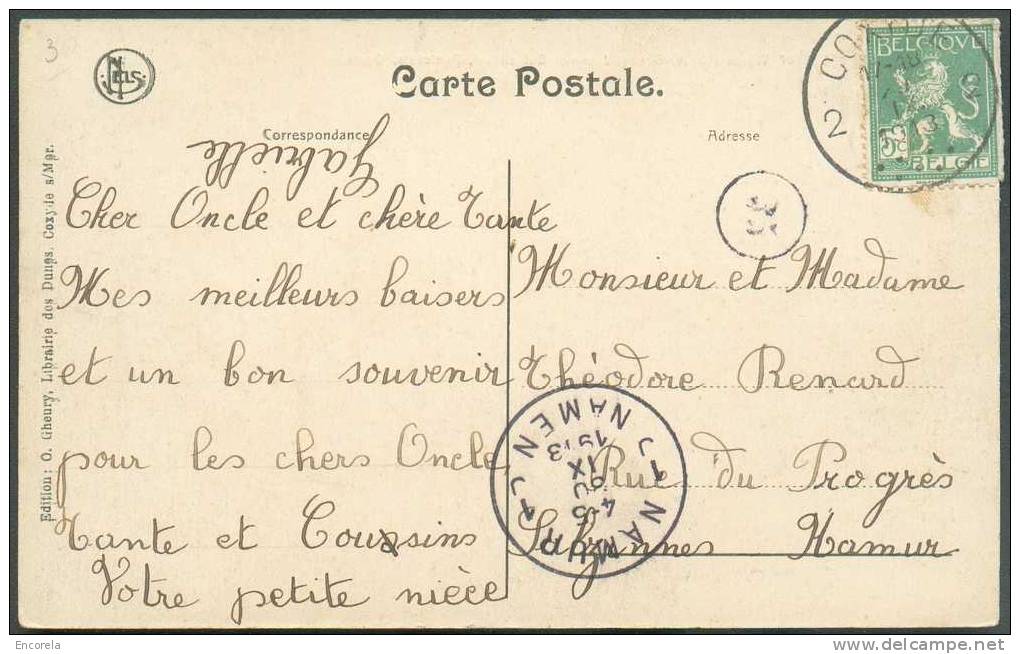 3
Nels
Carte Postale.
Correspondance
Adresse
BELGIQUE
5c
BELGIE
2
2
1913
33
Gabrielle
Cher Oncle et chère Tante
Mes meilleurs baisers
et un bon souvenir
pour les chers Oncle
Tante et Cousins
Votre petite nièce
Monsieur et Madame
Théodore Renard
Rue du Progrès
Namur
NAMUR 1
NAMEN 1
4-5
IX
1913
Edition : O. Gheury, Librairie des Dunes, Coxyde s/Mer.
Encorela
delcampe.net